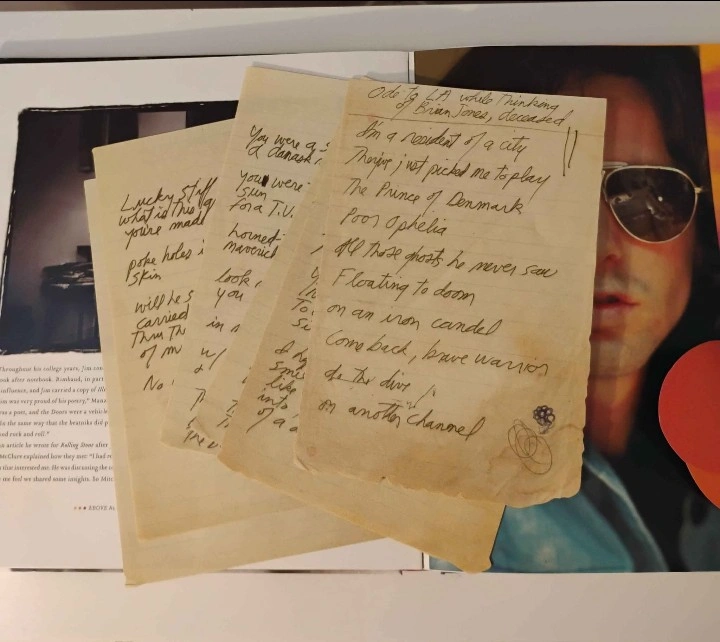 Ode to LA while Thinking
of Brian Jones, deceased
I'm a resident of a city
They've just picked me to play
The Prince of Denmark
Poor Ophelia
All those ghosts he never saw
Floating to doom
on an iron candel
Come back, brave warrior
do the dive
on another channel
You were a
& damask
you were
skin
for a T.V.
horned
maverick
look
you
in
w/
Lucky
what is this
you're made
poke holes i
skin
will he s
carried
Thru Th
of m
No
Y
To
Si
like
into
of a
Throughout his college years, Jim
ook after notebook. Rimbaud, in part
influence, and Jim carried a copy of Ill
im was very proud of his poetry," Man
was a poet, and the Doors were a vehicl
in the same way that the beatniks did p
ood rock and roll."
n article he wrote for Rolling Stone after
McClure explained how they met: "I had r
that interested me. He was discussing the
me feel we shared some insights. So Mitc
ABOVE